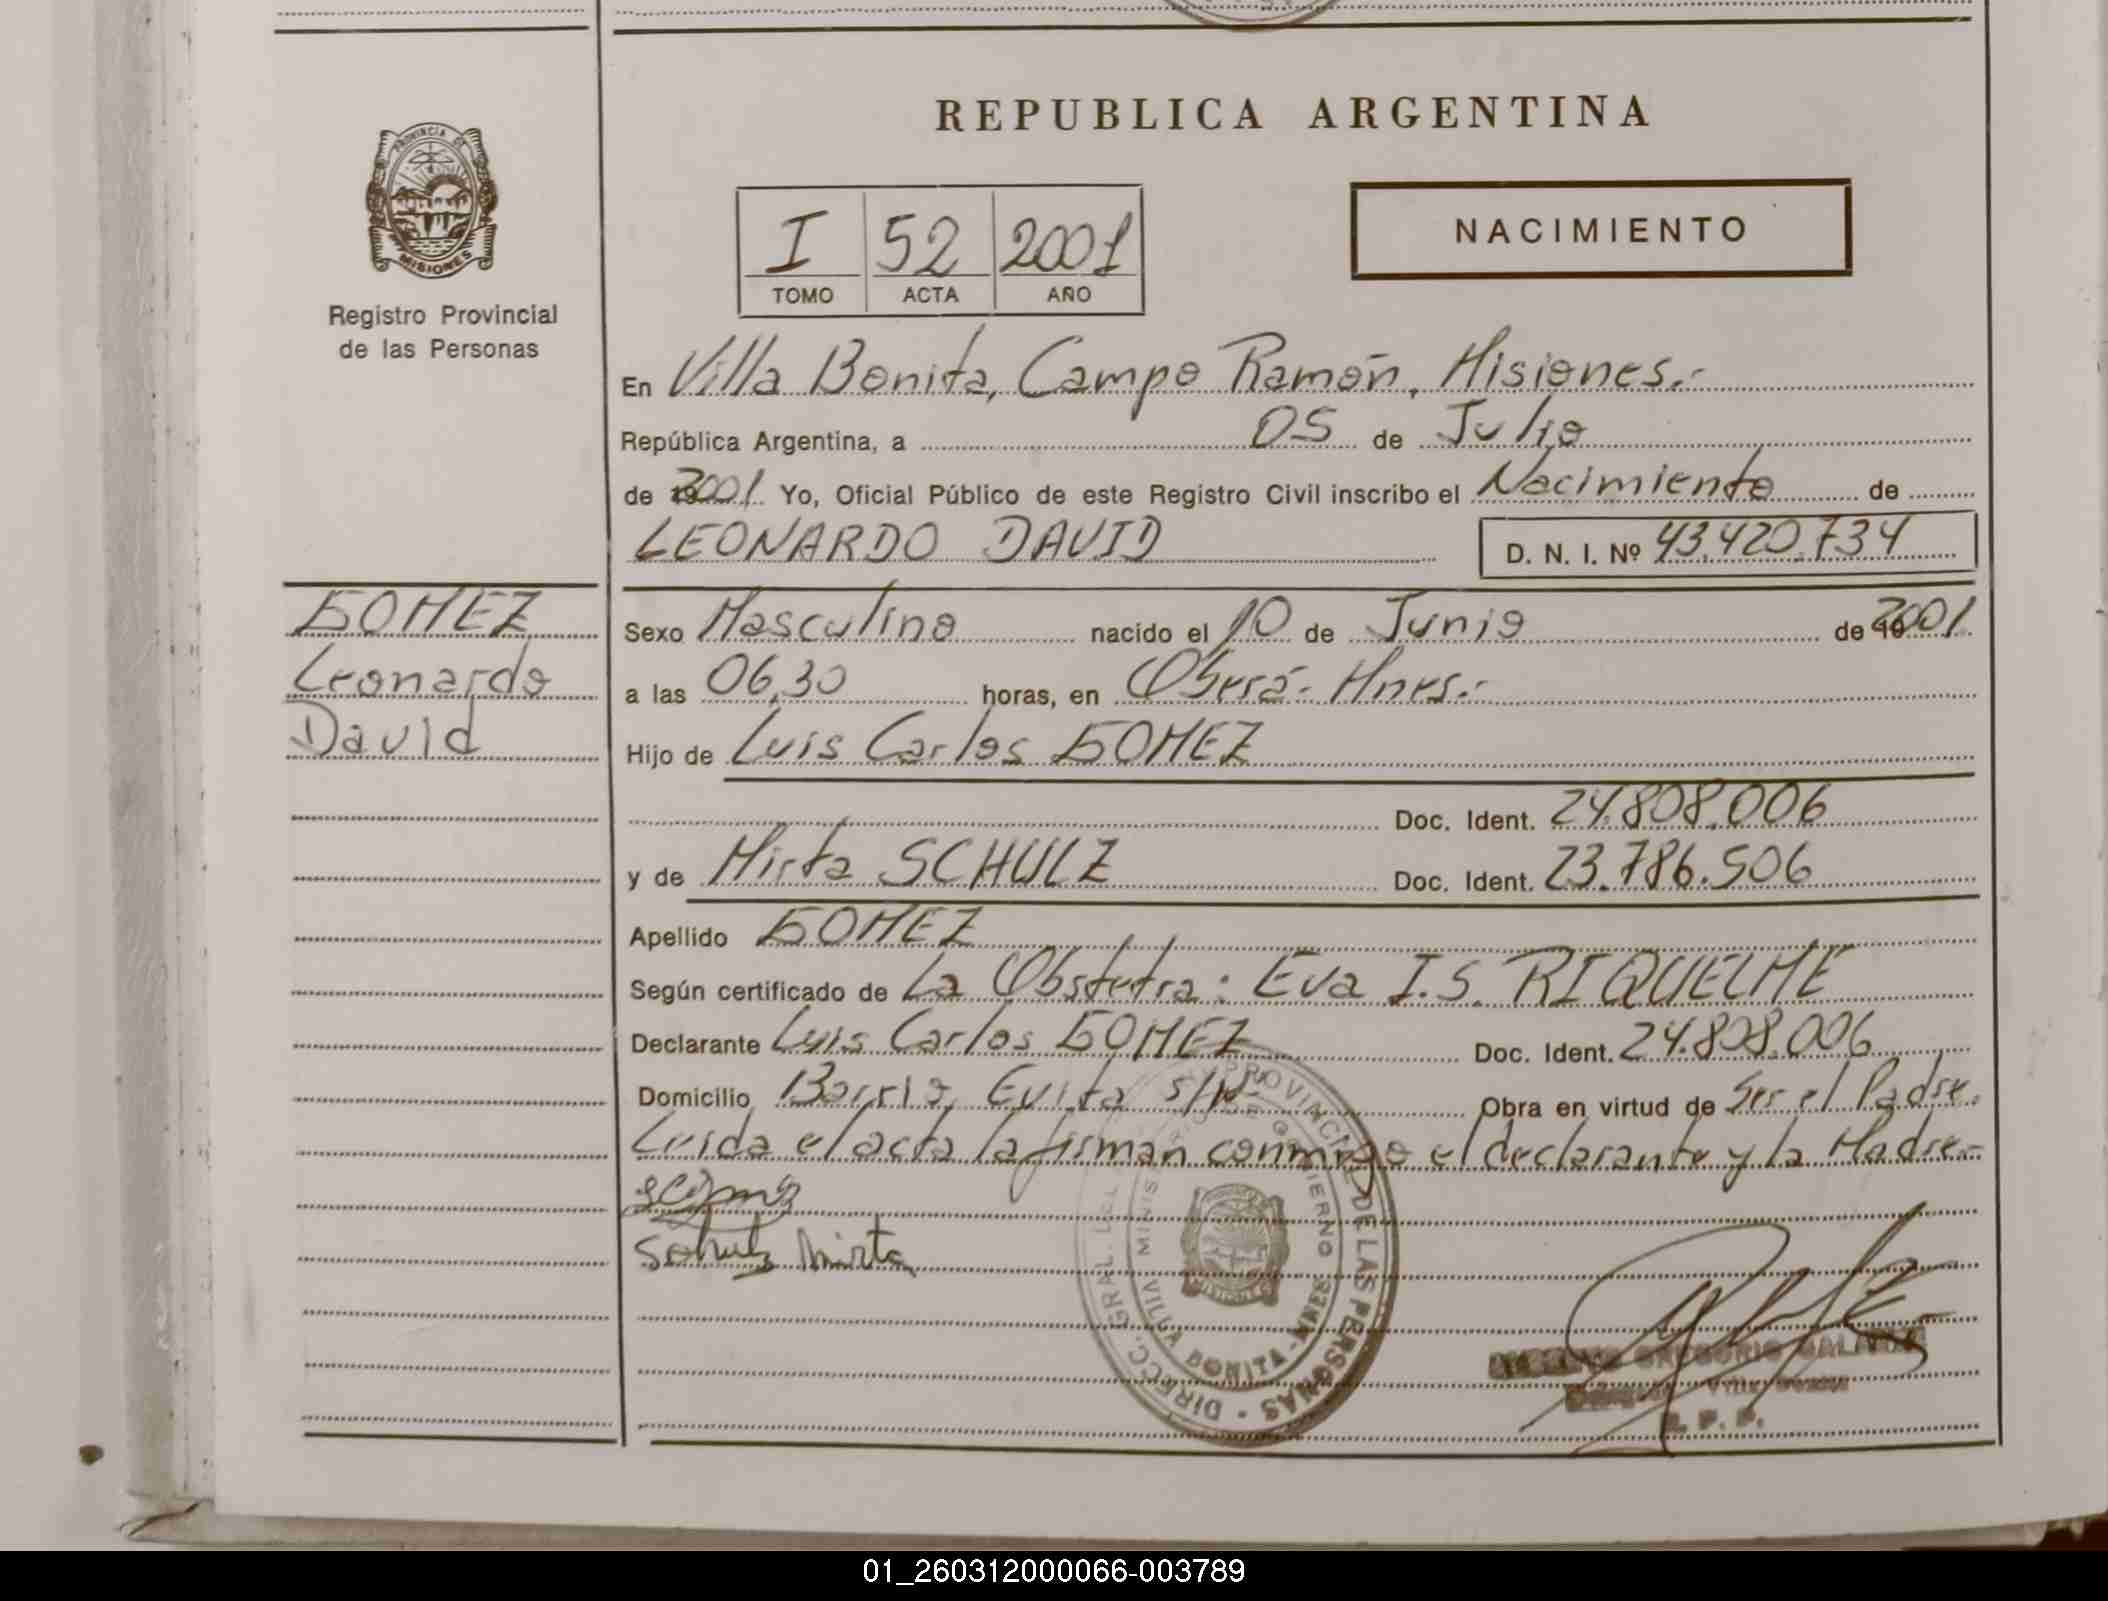 REPUBLICA ARGENTINA
PROVINCIA DE
MISIONES
Registro Provincial
de las Personas
I 52 2001
TOMO ACTA AÑO
NACIMIENTO
En Villa Bonita, Campo Ramón, Misiones.-
República Argentina, a 05 de Julio
de 2001 Yo, Oficial Público de este Registro Civil inscribo el Nacimiento de
LEONARDO DAVID D. N. I. Nº 43.420.734
GOMEZ
Leonardo
David
Sexo Masculino nacido el 10 de Junio de 2001
a las 06,30 horas, en Oberá- Mnes.-
Hijo de Luis Carlos GOMEZ
Doc. Ident. 24.808.006
y de Mirta SCHULZ Doc. Ident. 23.786.506
Apellido GOMEZ
Según certificado de La Obstetra: Eva I.S. RIQUELME
Declarante Luis Carlos GOMEZ Doc. Ident. 24.808.006
Domicilio Barrio Evita s/Nº Obra en virtud de Ser el Padre.
Leída el acta la firman conmigo el declarante y la Madre.-
Schulz Mirta
DIRECC. GRAL. PROVINCIAL DE LAS PERSONAS
MINISTERIO DE GOBIERNO
VILLA BONITA - MNES
GREGORIO
R. P. P.
01_260312000066-003789